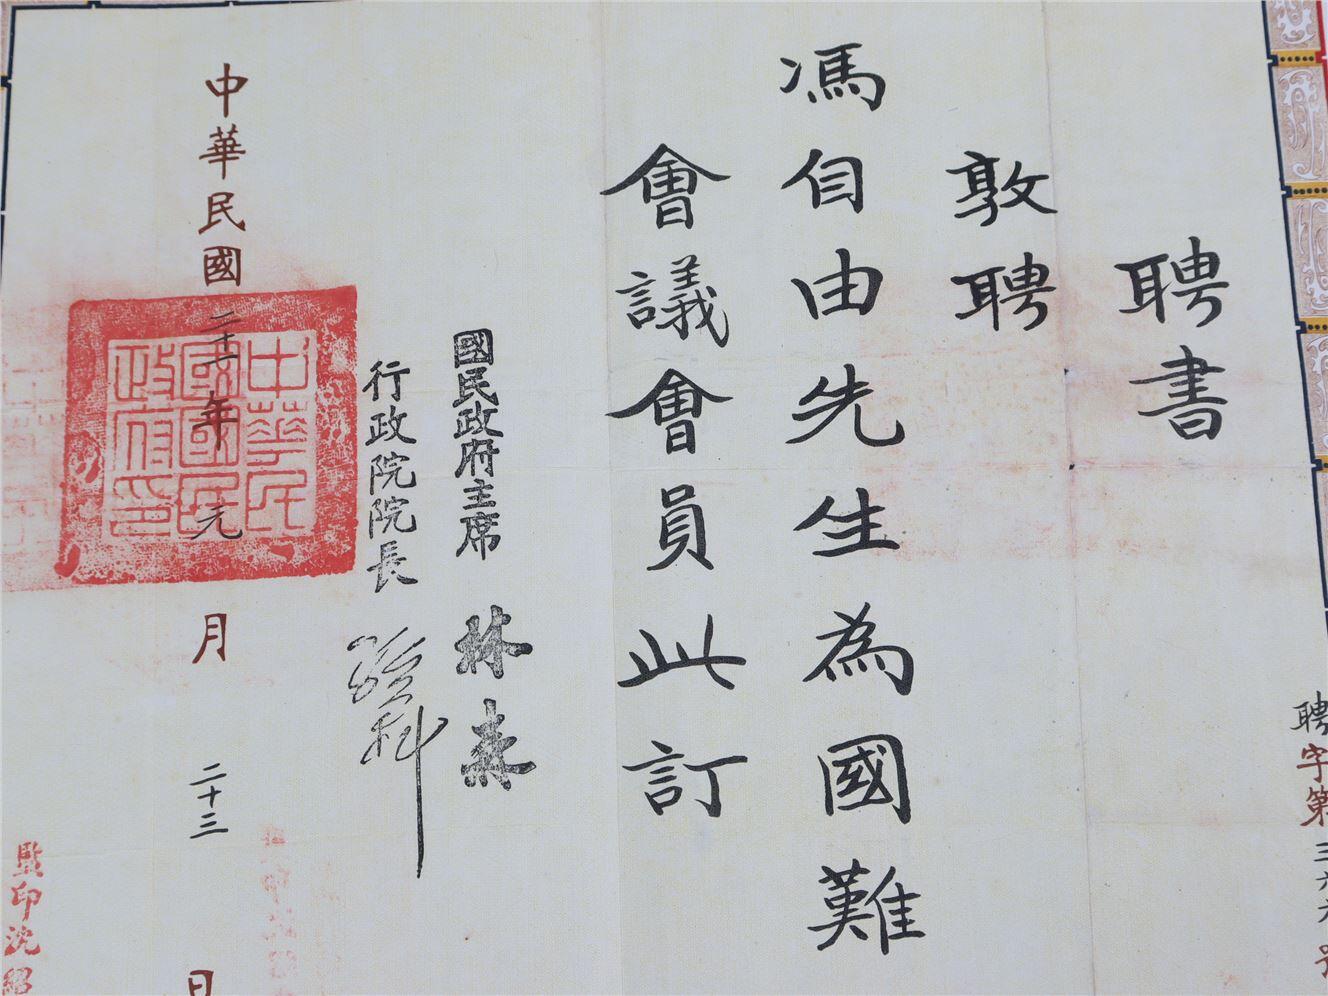 聘字第三六六號
聘書
敦聘
馮自由先生為國難
會議會員此訂
國民政府主席 林森
行政院院長 孫科
中華民國二十一年元月二十三日
中華民國國民政府印
監印沈